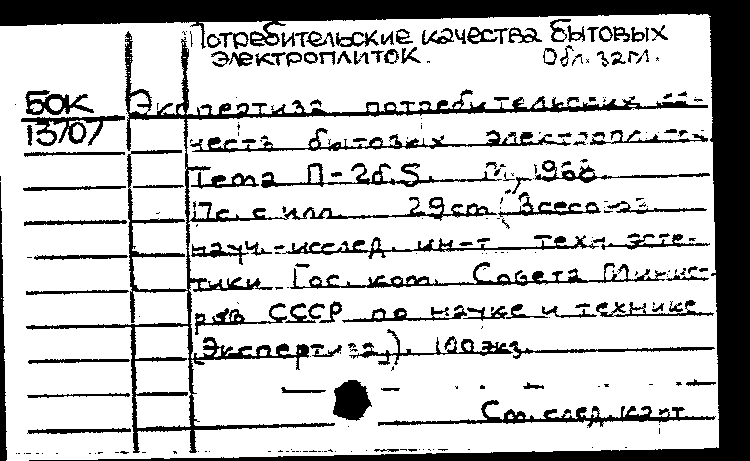 Потребительские качества бытовых
электроплиток. Обл. загл.
БОК Экспертиза потребительских ка-
13707 честв бытовых электроплиток
Тема П-26.5. М., 1968.
17с. с илл. 29cm (Всесоюз.
науч.-исслед. ин-т техн. эсте-
тики Гос. ком. Совета Минист-
ров СССР по науке и технике
(Экспертиза,). 100 экз.
См. след. карт